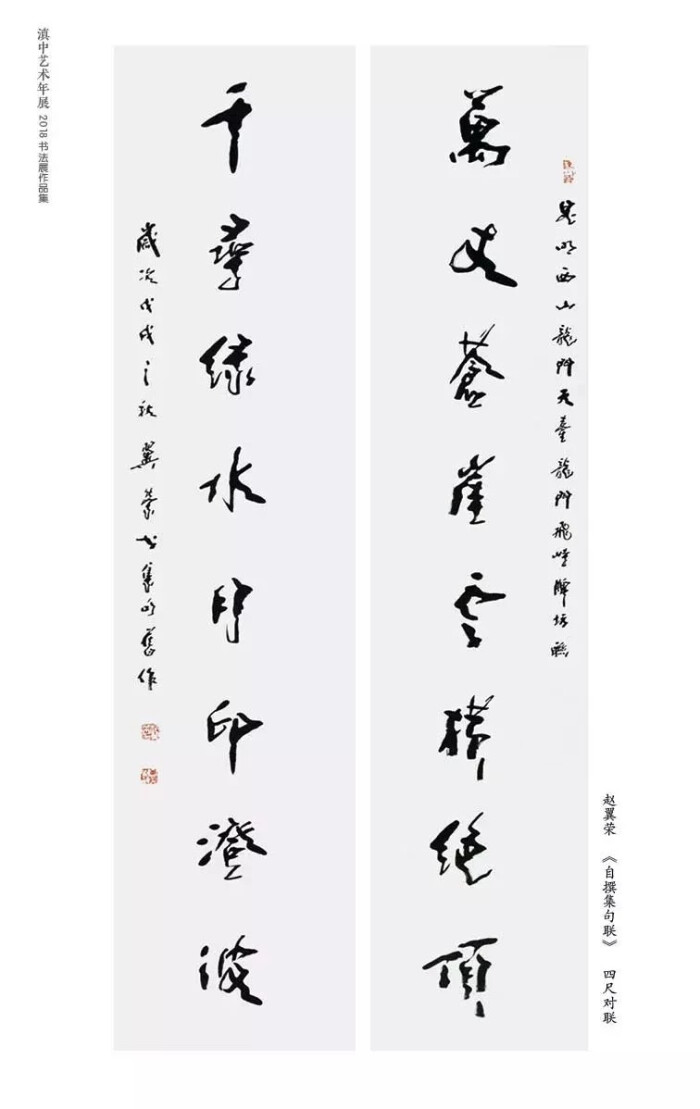 滇中艺术年展 2018 书法展作品集
昆明西山龍門天臺龍門飛牌坊聯
萬丈蒼崖雲橫絕頂
千尋綠水月印澄波
歲次戊戌之秋翼榮书集句舊作
赵翼荣 《自撰集句联》 四尺对联